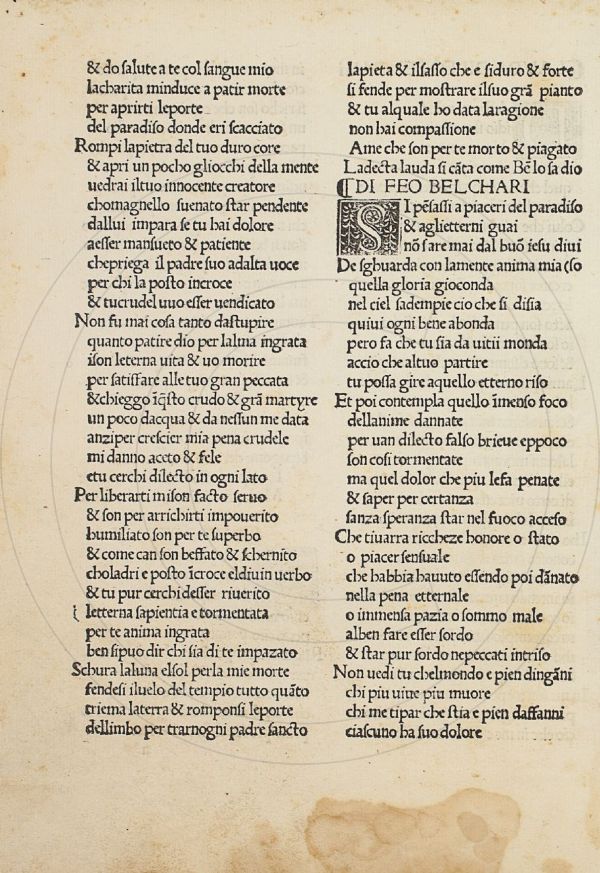 & do salute a te col sangue mio
lacharita minduce a patir morte
per aprirti leporte
del paradiso donde eri scacciato
Rompi lapietra del tuo duro core
& apri un pocho gliocchi della mente
uedrai iltuo innocente creatore
chomagnello suenato star pendente
dallui impara se tu hai dolore
aesser mansueto & patiente
chepriega il padre suo adalta uoce
per chi la posto incroce
& tucrudel uuo esser uendicato
Non fu mai cosa tanto dastupire
quanto patire dio per lalma ingrata
ison leterna uita & uo morire
per satisfare alle tuo gran peccata
&chieggo iq̄sto crudo & grā martyre
un poco dacqua & da nessun me data
anziper crescier mia pena crudele
mi danno aceto & fele
etu cerchi dilecto in ogni lato
Per liberarti mison facto seruo
& son per arrichirti impouerito
humiliato son per te superbo
& come can son beffato & schernito
choladri e posto īcroce eldiuin uerbo
& tu pur cerchi desser riuerito
letterna sapientia e tormentata
per te anima ingrata
ben sipuo dir chi sia di te impazato
Schura laluna elsol perla mie morte
fendesi iluelo del tempio tutto quāto
triema laterra & romponsi leporte
dellimbo per trarnogni padre sancto
lapieta & ilsasso che e siduro & forte
si fende per mostrare ilsuo grā pianto
& tu alquale ho data laragione
non hai compassione
Ame che son per te morto & piagato
Ladecta lauda si cāta come Bē lo sa dio
⸿DI FEO BELCHARI
SI pēsassi a piaceri del paradiso
& aglietterni guai
nō sare mai dal buō iesu diui
De sghuarda con lamente anima mia (so
quella gloria gioconda
nel ciel sadempie cio che si disia
quiui ogni bene abonda
pero fa che tu sia da uitii monda
accio che altuo partire
tu possa gire aquello etterno riso
Et poi contempla quello īmenso foco
dellanime dannate
per uan dilecto falso brieue eppoco
son cosi tormentate
ma quel dolor che piu lefa penate
& saper per certanza
sanza speranza star nel fuoco acceso
Che tiuarra riccheze honore o stato
o piacer sensuale
che habbia hauuto essendo poi dānato
nella pena etternale
o immensa pazia o sommo male
alben fare esser sordo
& star pur sordo nepeccati intriso
Non uedi tu chelmondo e pien dingāni
chi piu uiue piu muore
chi me tipar che stia e pien daffanni
ciascuno ha suo dolore